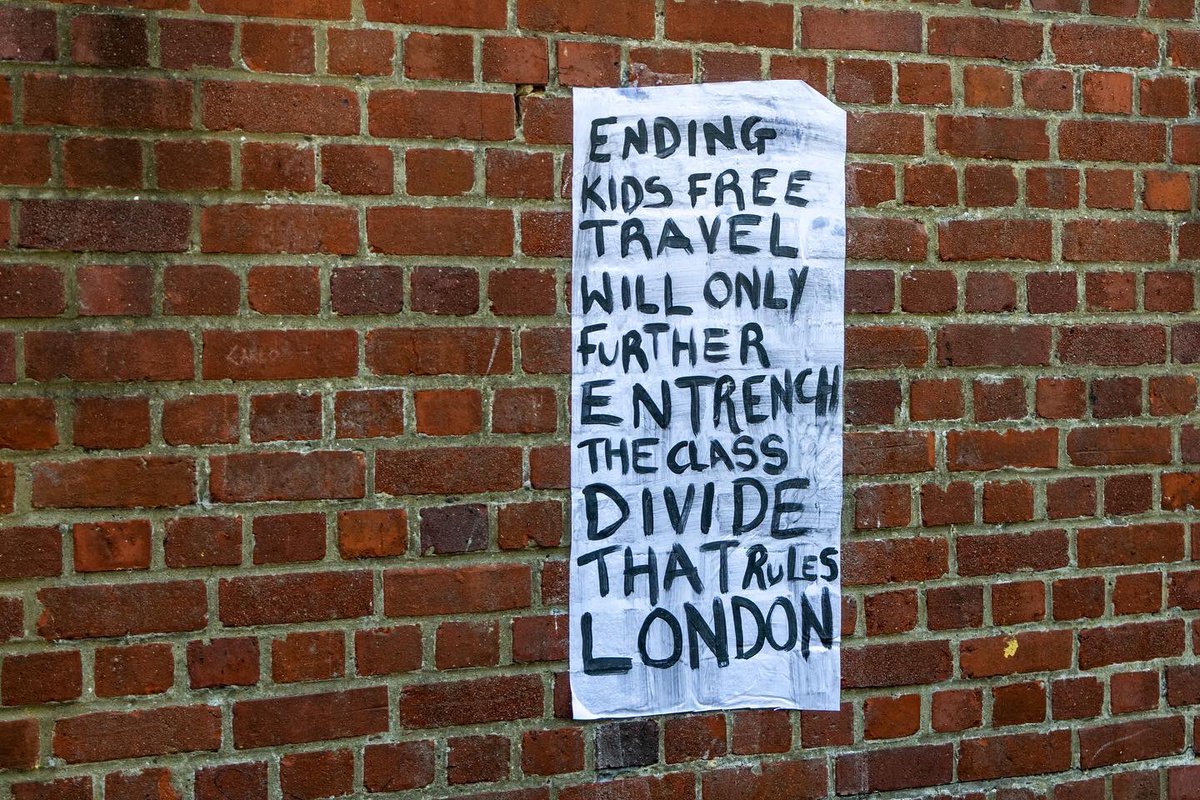 ENDING
KIDS FREE
TRAVEL
WILL ONLY
FURTHER
ENTRENCH
THE CLASS
DIVIDE
THAT RULES
LONDON